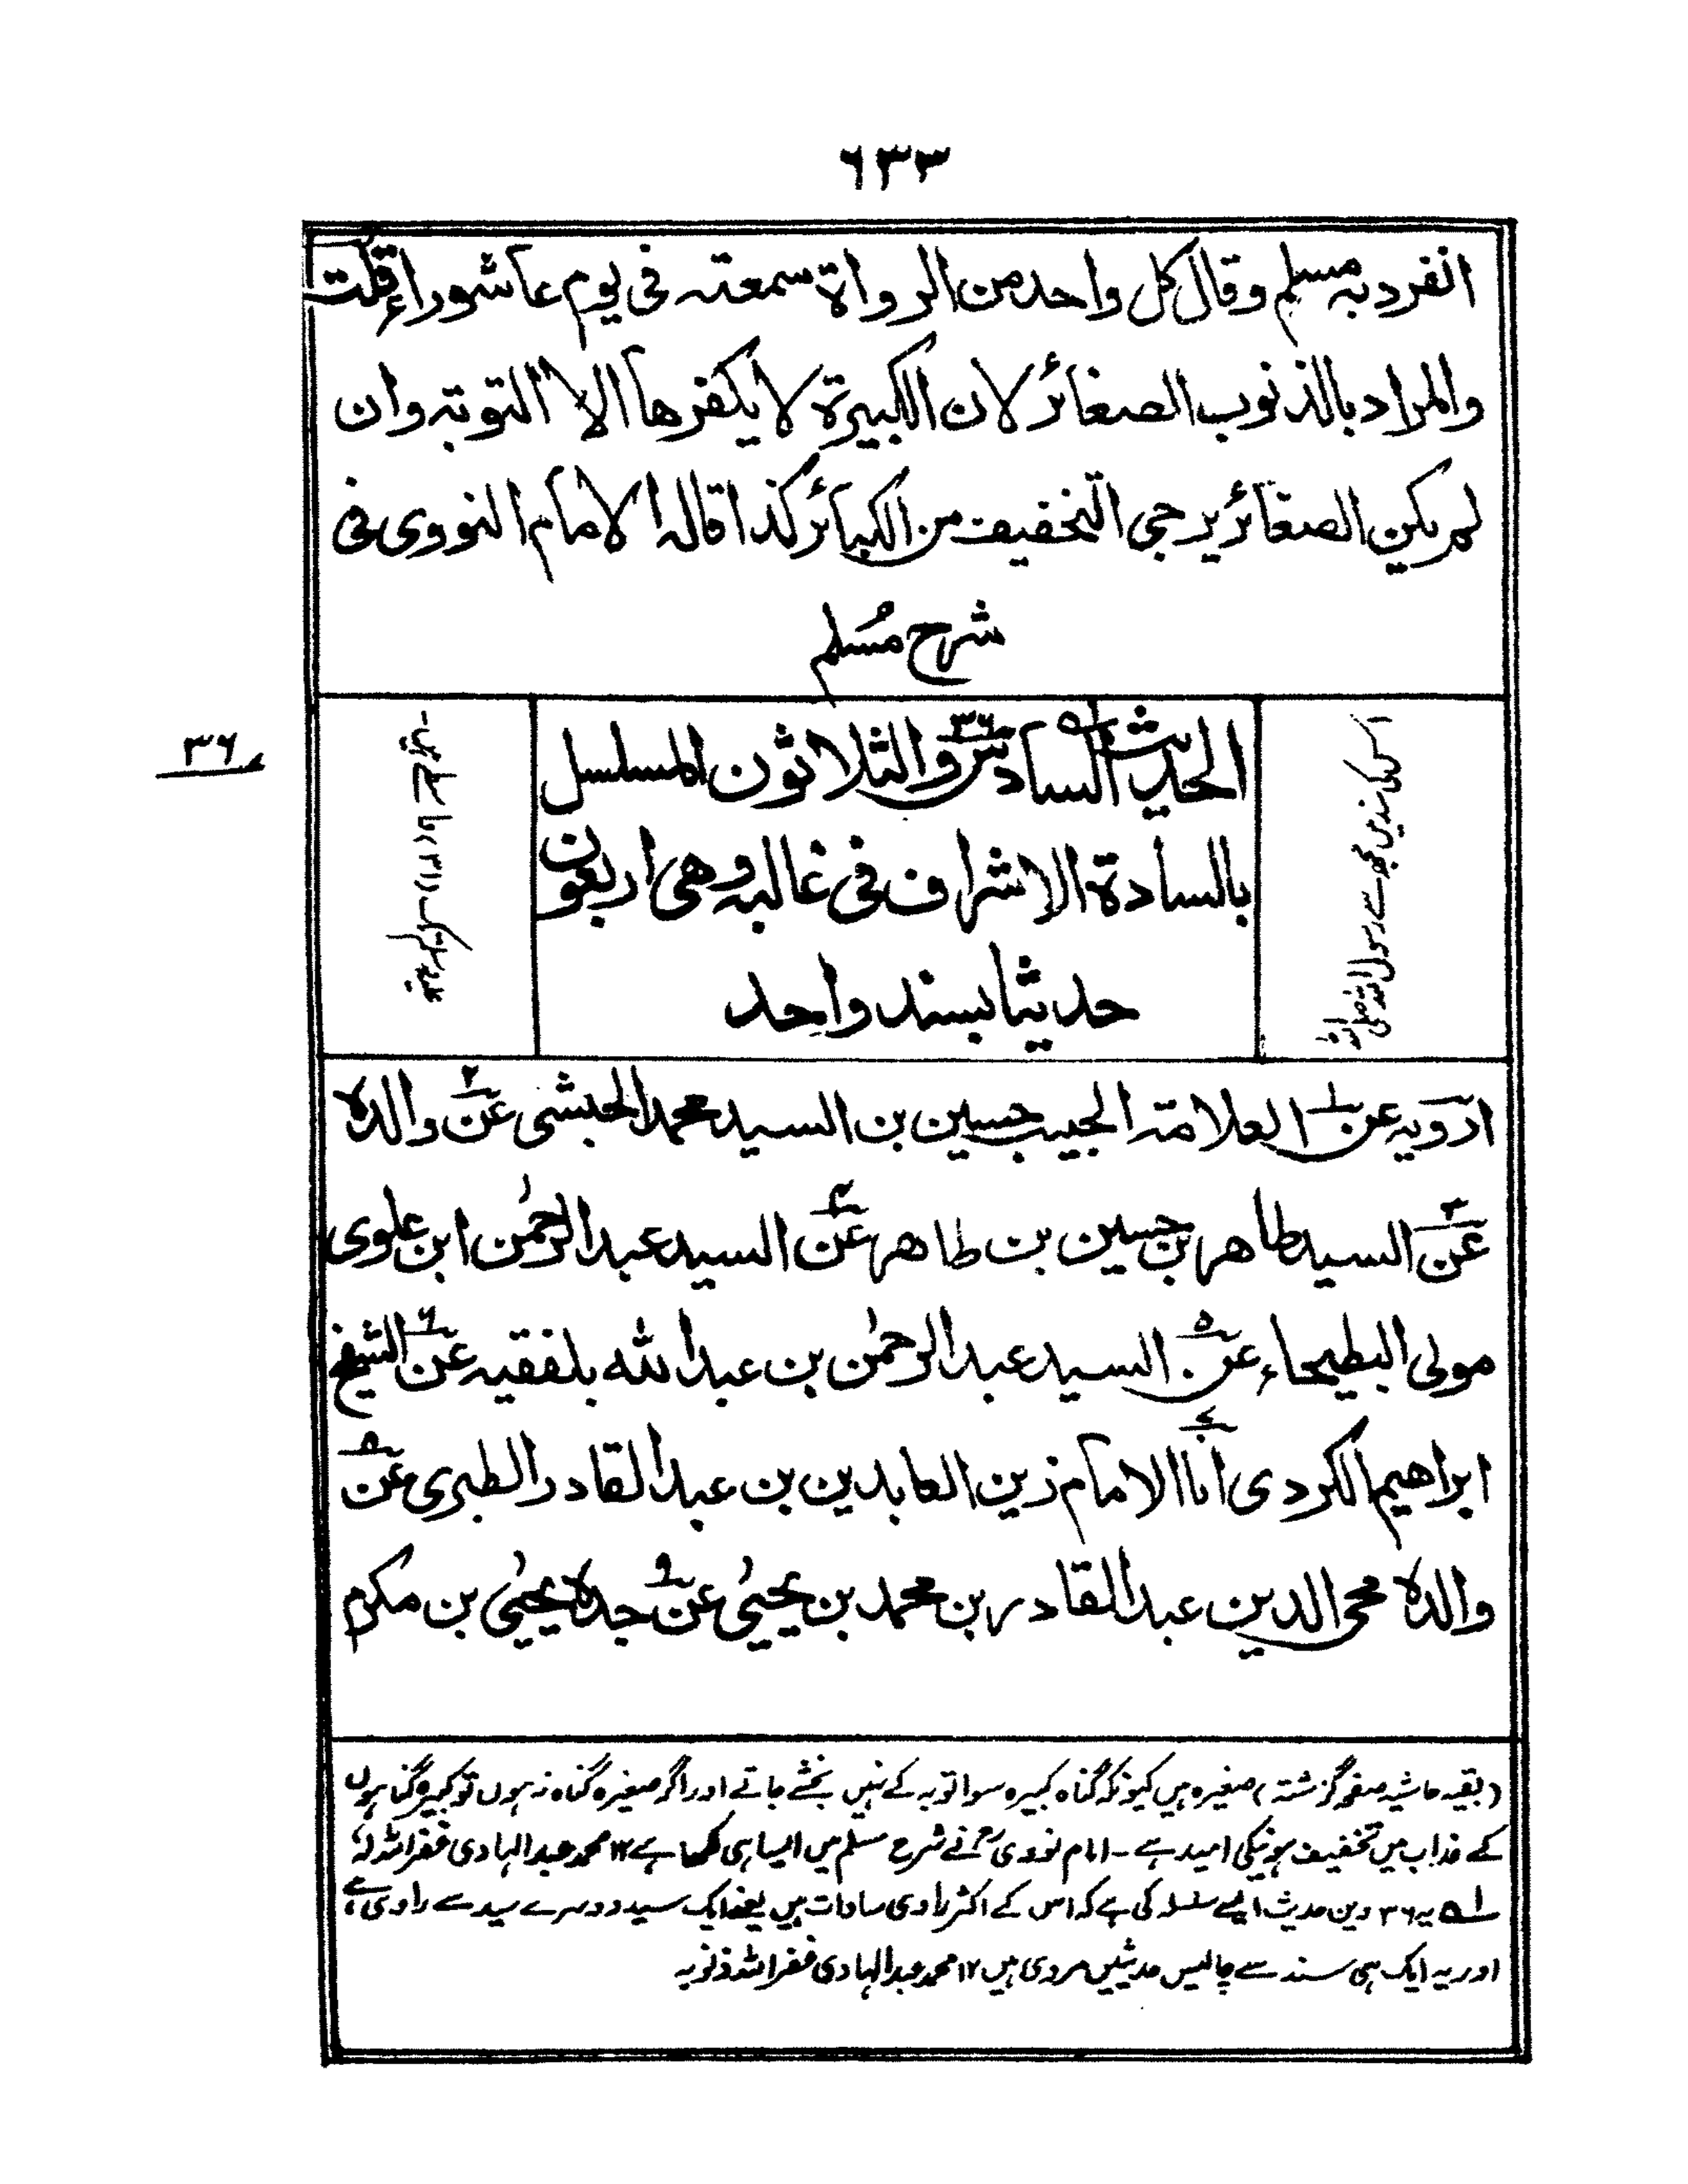 ٦٣٣
انفرد به مسلم وقال كل واحد من الرواة سمعته فى يوم عاشوراء قلت
والمراد بالذنوب الصغائر لان الكبيرة لا يكفرها الا التوبة وان
لم يكن الصغائر يرجى التخفيف من الكبائر كذا قاله الامام النووى فى
شرح مُسلم
٣٦
اس کی سند میں مجھ سے رسول اللہ صلی اللہ
الحديث السادس والثلاثون المسلسل
بالسادة الاشراف فى غالبه وهى اربعون
حديثا بسند واحد
ارويه عن العلامة الحبيب حسين بن السيد محمد الحبشى عن والده
عن السيد طاهر بن حسين بن طاهر عن السيد عبد الرحمٰن ابن علوى
مولى البطيحاء عن السيد عبد الرحمٰن بن عبد الله بلفقيه عن الشيخ
ابراهيم الكردى انا الامام زين العابدين بن عبد القادر الطبرى عن
والده محى الدين عبد القادر بن محمد بن يحيىٰ عن جده يحيىٰ بن مكرم
(بقیہ حاشیہ صفحہ گزشتہ) صغیرہ ہیں کیونکہ گناہ کبیرہ سوا توبہ کے نہیں بخشے جاتے اور اگر صغیرہ گناہ نہ ہوں تو کبیرہ گناہوں
کے عذاب میں تخفیف ہونیکی امید ہے ۔ امام نووی رح نے شرح مسلم میں ایسا ہی لکھا ہے ١٢ محمد عبد الہادی غفر اللہ لہٗ
لہ یہ ٣٦ ویں حدیث ایسے سلسلہ کی ہے کہ اس کے اکثر راوی سادات ہیں یعنے ایک سید دوسرے سید سے راوی ہے
اور یہ ایک ہی سند سے چالیس حدیثیں مروی ہیں ١٢ محمد عبد الہادی غفر اللہ ذنوبہ